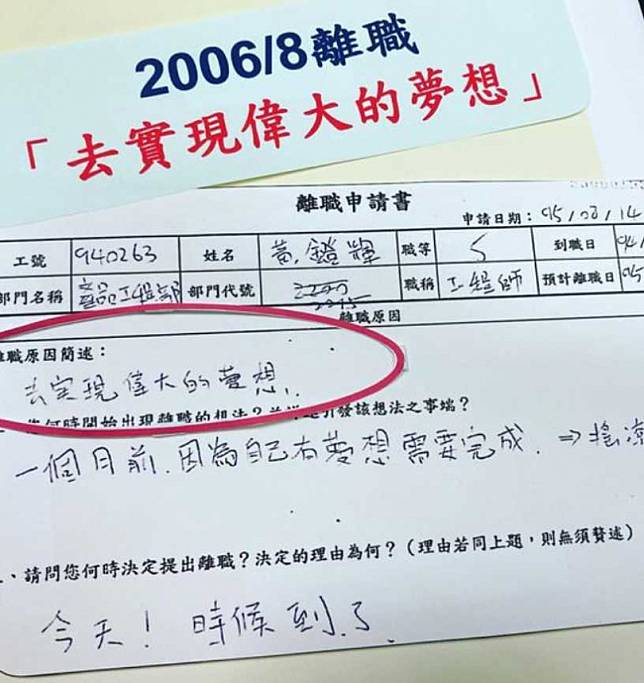 2006/8離職
「去實現偉大的夢想」
離職申請書
申請日期：95/08/14
工號 940263 姓名 黃鐙輝 職等 5 到職日 94/
部門名稱 產品工程部 部門代號 職稱 工程師 預計離職日 95
離職原因
離職原因簡述：
去實現偉大的夢想.
您何時開始出現離職的想法？ 引發該想法之事端？
一個月前.因為自己有夢想需要完成. ⇒搖滾
、請問您何時決定提出離職？決定的理由為何？（理由若同上題，則無須贅述）
今天！時候到了